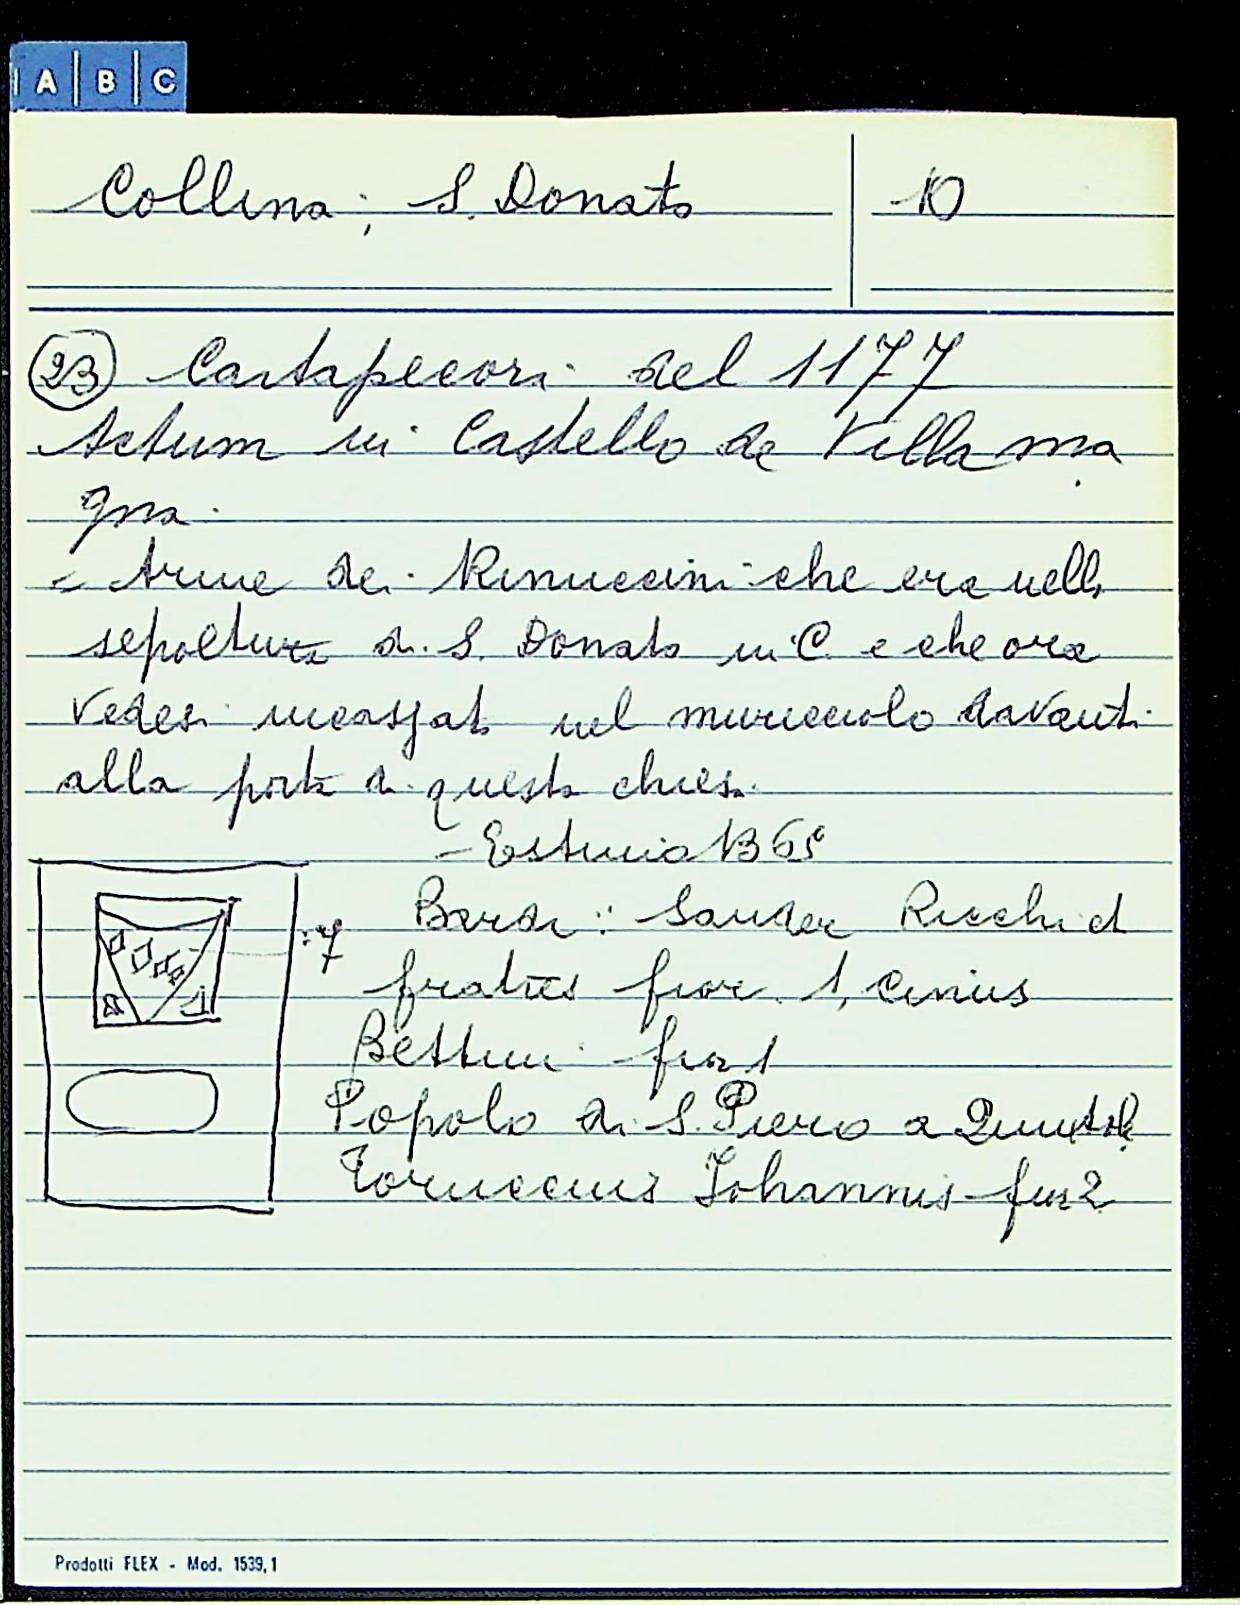 A B C
Collina; S. Donato 10
23 Cartapecori del 1177
Actum in Castello de Villa ma
gna.
Arme dei Rinuccini che era nella
sepoltura di S. Donato in C. e che ora
vedesi incassato nel muricciolo davanti
alla porta di questa chiesa
- Estimo 1365
Bardi: Sander Ricchi et
:7 fratres fior. 1, Cinius
Bettini fior 1
Popolo di S. Piero a Quintole
Toruccius Johannis fior 2
Prodotti FLEX - Mod. 1539,1